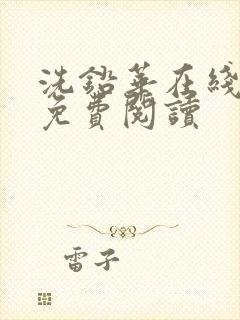 洗鉛華在綫
免費閱讀
雷子